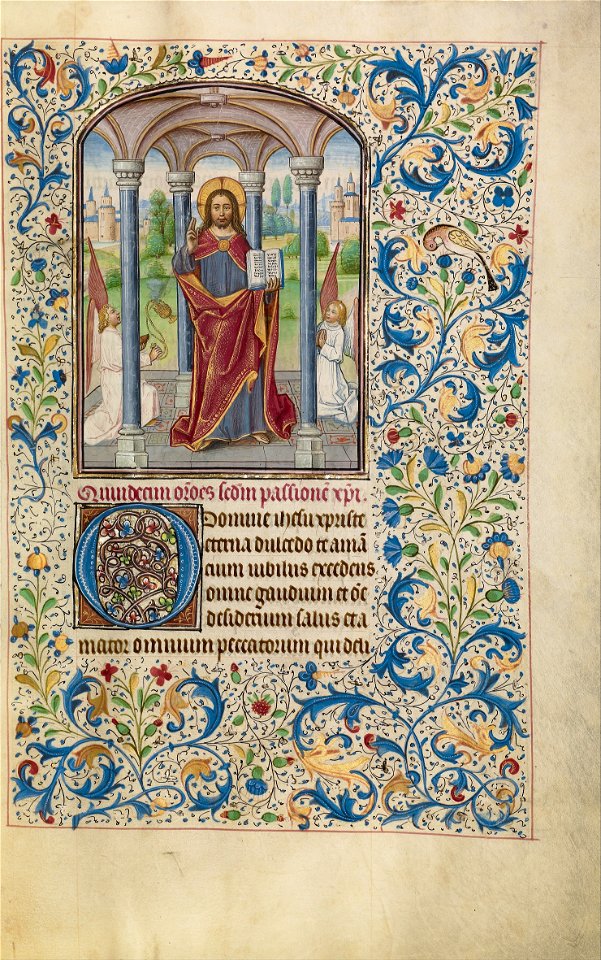 Quindecim or̄oes scdm̄ passionē xp̄i.
O Domine ihesu xpriste
eterna dulcedo te amā
cium iubilus excedens
omne gaudium et oē
desiderium salus et a
mator omnium peccatorum qui deli